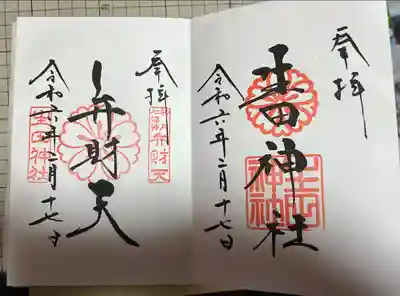 奉拝
生田神社
令和六年二月十七日
奉拝
弁財天
弁財天
令和六年二月十七日
生田神社